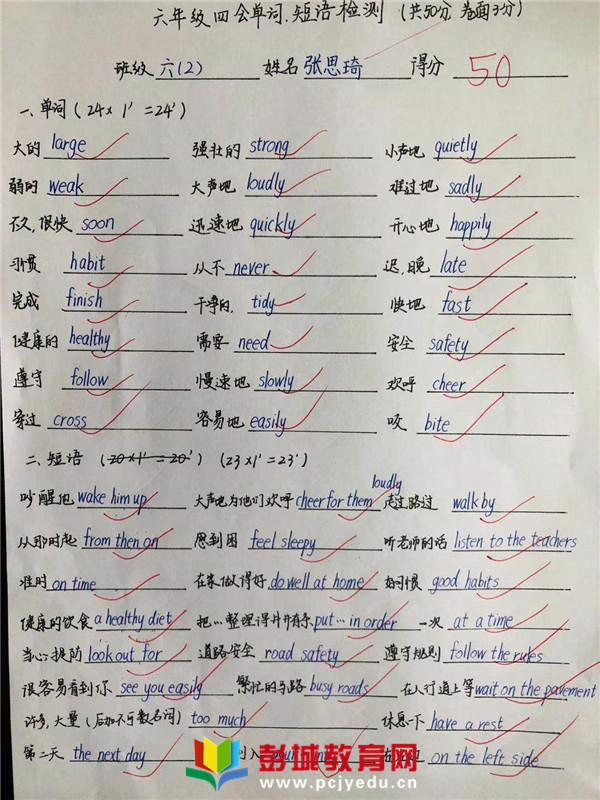 六年级四会单词、短语检测 (共50分,卷面3分)
班级 六(2) 姓名 张思琦 得分 50
一、单词 (24×1'=24')
大的 large 强壮的 strong 小声地 quietly
弱的 weak 大声地 loudly 难过地 sadly
不久,很快 soon 迅速地 quickly 开心地 happily
习惯 habit 从不 never 迟,晚 late
完成 finish 干净的, tidy 快地 fast
健康的 healthy 需要 need 安全 safety
遵守 follow 慢速地 slowly 欢呼 cheer
穿过 cross 容易地 easily 咬 bite
二、短语 (20×1'=20') (23×1'=23')
吵醒他 wake him up 大声地为他们欢呼 cheer for them loudly 走过路过 walk by
从那时起 from then on 感到困 feel sleepy 听老师的话 listen to the teachers
准时 on time 在家做得好 do well at home 好习惯 good habits
健康的饮食 a healthy diet 把…整理得井井有条 put … in order 一次 at a time
当心提防 look out for 道路安全 road safety 遵守规则 follow the rules
很容易看到你 see you easily 繁忙的马路 busy roads 在人行道上等 wait on the pavement
许多,大量 (后加不可数名词) too much 休息一下 have a rest
第二天 the next day on the left side
彭城教育网
www.pcjyedu.cn